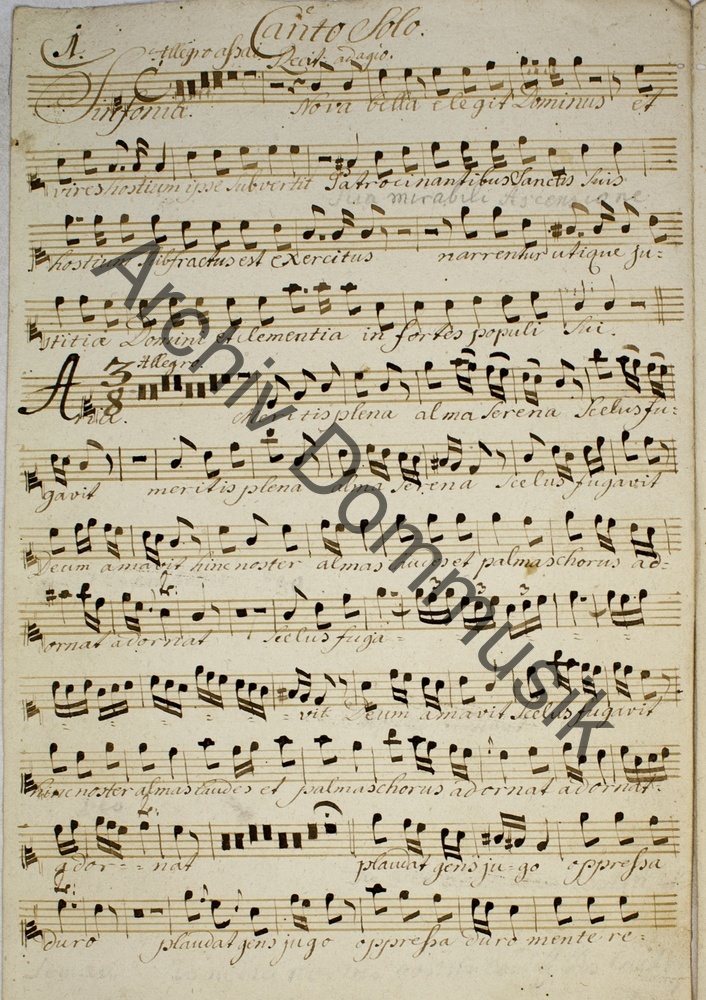 Canto Solo.
1. Allegro assai Recit: adagio.
Sinfonia. Nova bella elegit Dominus et
vires hostium ipse subvertit Patrocinantibus Sanctis suis
sua mirabili Ascensione
hostium fractus est exercitus narrentur utique ju:
stitiæ Domini et clementia in fortes populi sui.
3/8 Allegro.
Aria. Meritis plena alma serena scelus fu:
gavit meritis plena alma serena scelus fugavit
Deum amavit hinc noster almas laudes et palmas chorus ad:
ornat adornat scelus fuga -
3 3 3
vit Deum amavit scelus fugavit
hinc noster almas laudes et palmas chorus adornat adornat.
ador - - nat plaudat gens ju-go oppressa
duro plaudat gens jugo oppressa duro mente re-
Archiv Dommusik